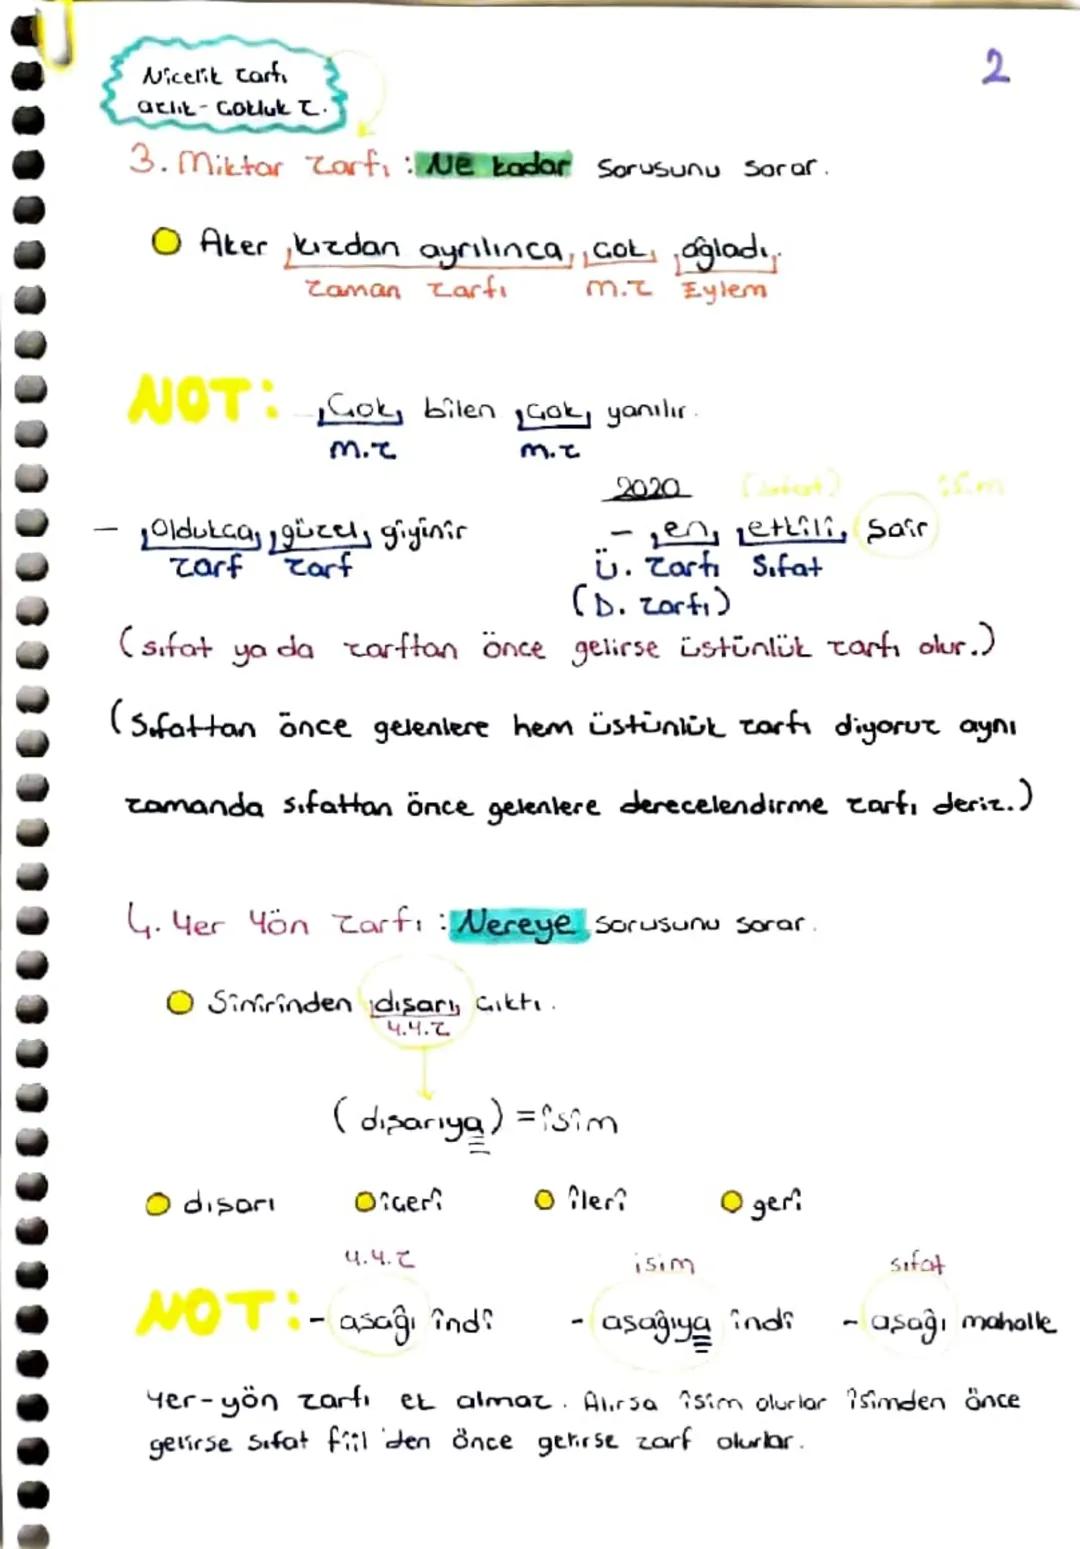 Nicelik zarfı
azlık-Çokluk z.
2
3. Miktar zarfı : Ne kadar sorusunu sorar.
Aker kızdan ayrılınca, çok ağladı.
zaman zarfı m.z Eylem
NOT: Çok bilen çok yanılır.
m.z m.z
2020 (sıfat) isim
- Oldukça güzel giyinir
zarf zarf
- en etkili şair
Ü. zarfı Sıfat
(D. zarfı)
(sıfat ya da zarftan önce gelirse üstünlük zarfı olur.)
(Sıfattan önce gelenlere hem üstünlük zarfı diyoruz aynı
zamanda sıfattan önce gelenlere derecelendirme zarfı deriz.)
4. Yer Yön zarfı : Nereye sorusunu sorar.
Sinirinden dışarı çıktı.
Y.Y.Z
(dışarıya) = isim
dışarı içeri ileri geri
Y.Y.Z isim sıfat
NOT: - aşağı indi - aşağıya indi - aşağı mahalle
Yer-yön zarfı ek almaz. Alırsa isim olurlar isimden önce
gelirse sıfat fiil'den önce gelirse zarf olurlar.